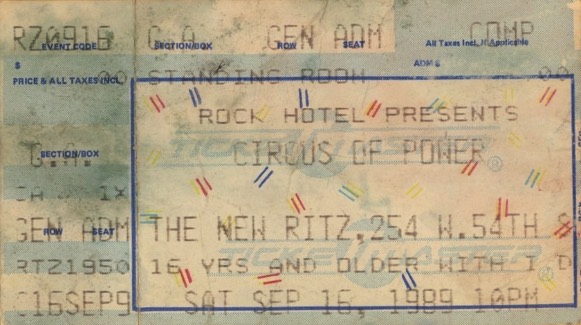 RZ0916 G.A GEN ADM COMP
EVENT CODE SECTION/BOX ROW SEAT All Taxes Incl. If Applicable
$ ADM $
PRICE & ALL TAXES INCL. 00 STANDING ROOM 00
ROCK HOTEL PRESENTS
SECTION/BOX CIRCUS OF POWER
TICKETMASTER
GA 1X
GEN ADM THE NEW RITZ,254 W.54TH S
ROW SEAT
TICKETMASTER
RTZ1950 16 YRS AND OLDER WITH I D
C16SEP9 SAT SEP 16, 1989 10PM